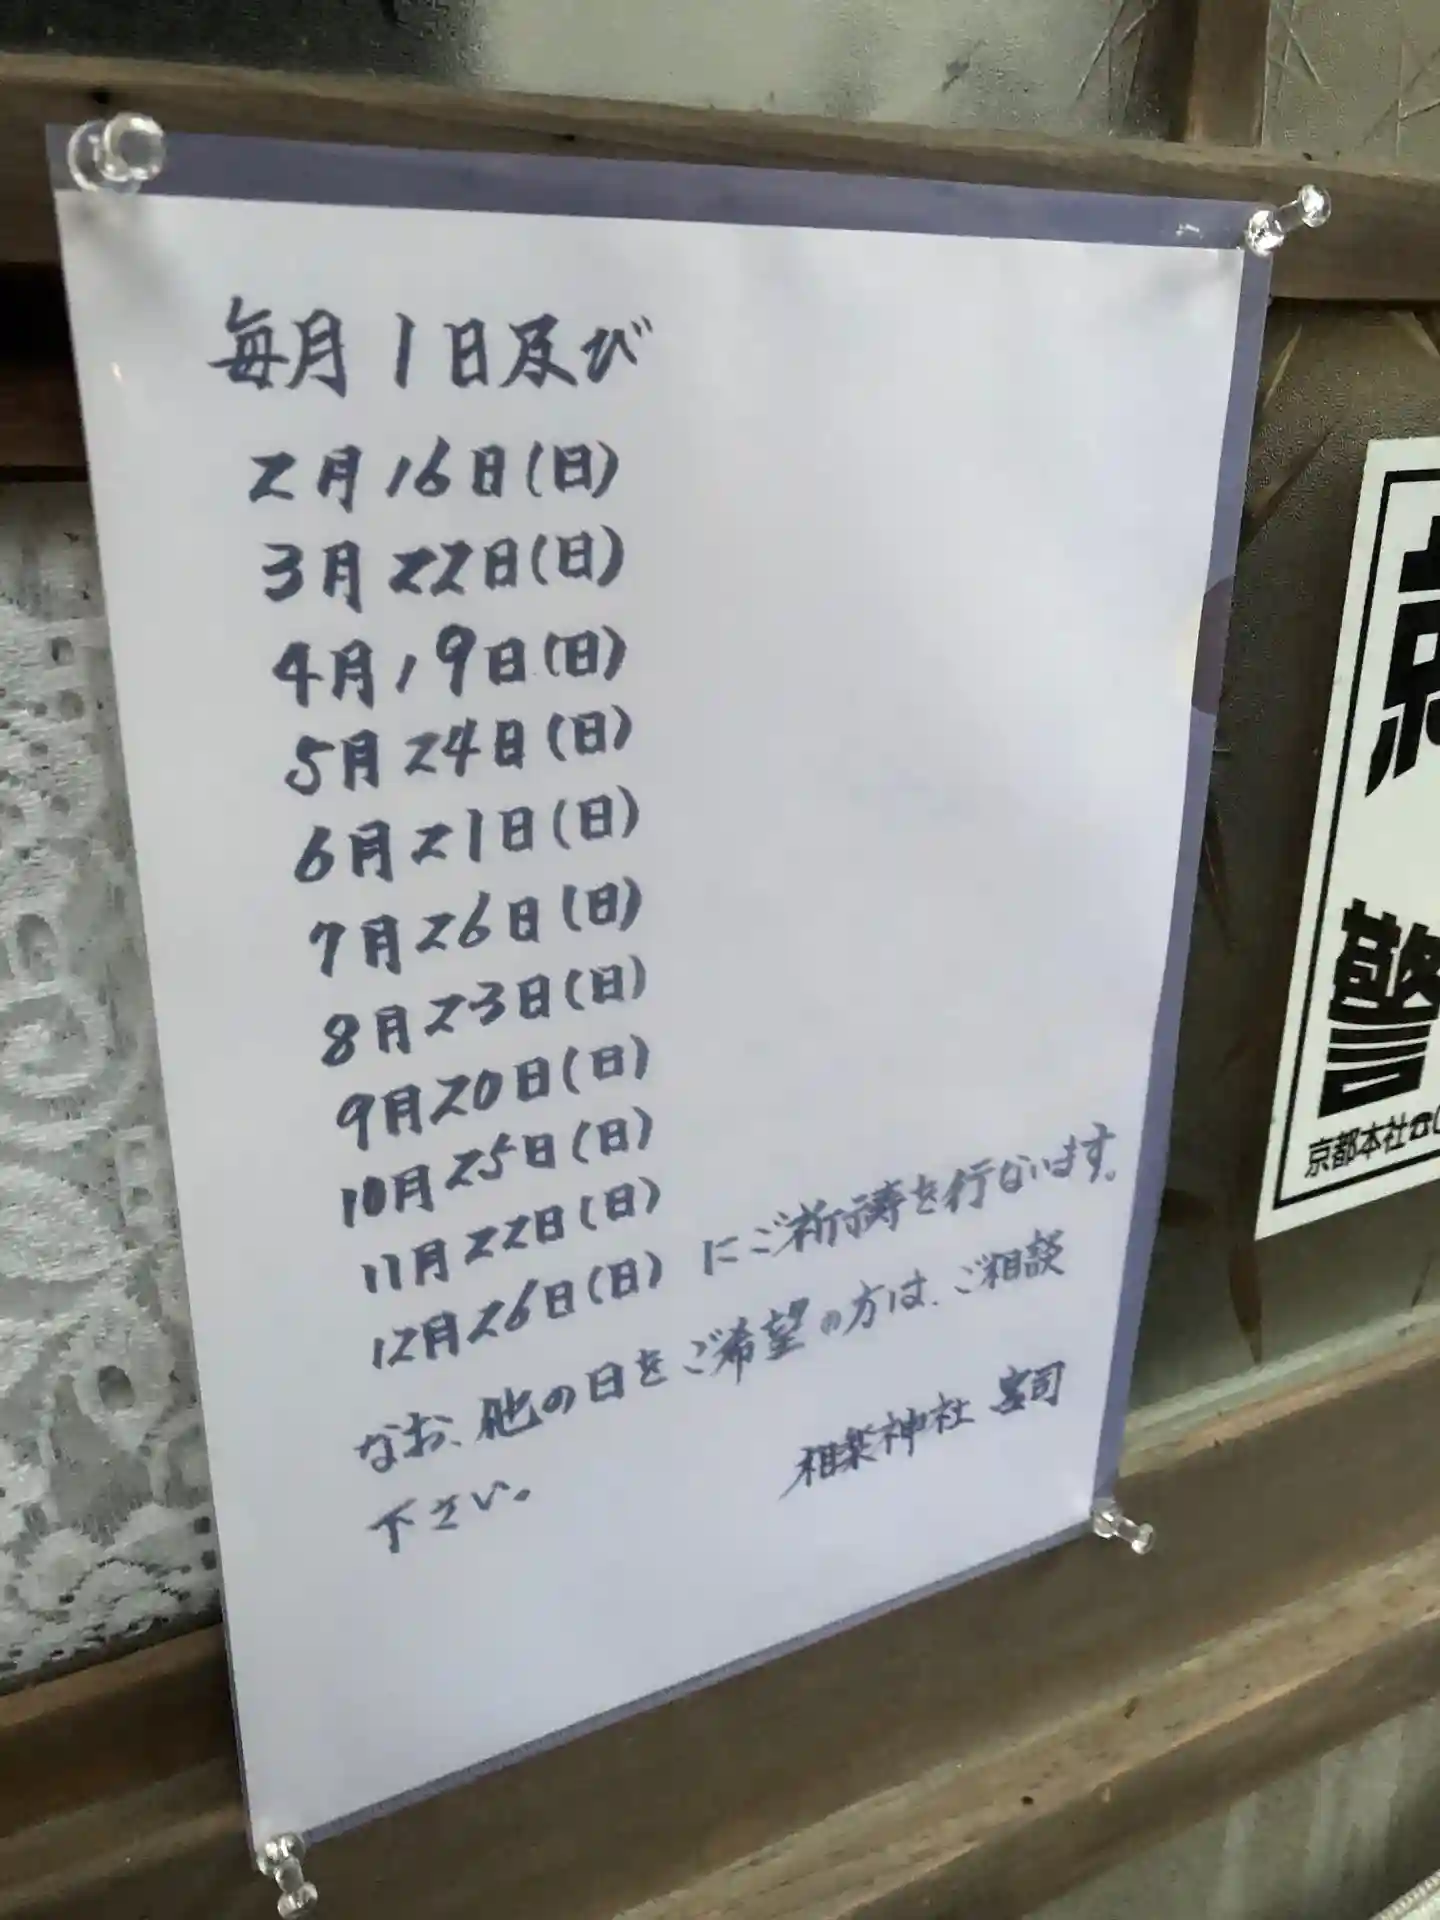 毎月1日及び
2月16日(日)
3月22日(日)
4月19日(日)
5月24日(日)
6月21日(日)
7月26日(日)
8月23日(日)
9月20日(日)
10月25日(日)
11月22日(日)
12月26日(日)にご祈祷を行ないます。
なお、他の日をご希望の方は、ご相談
下さい。
相楽神社 宮司
警
京都本社